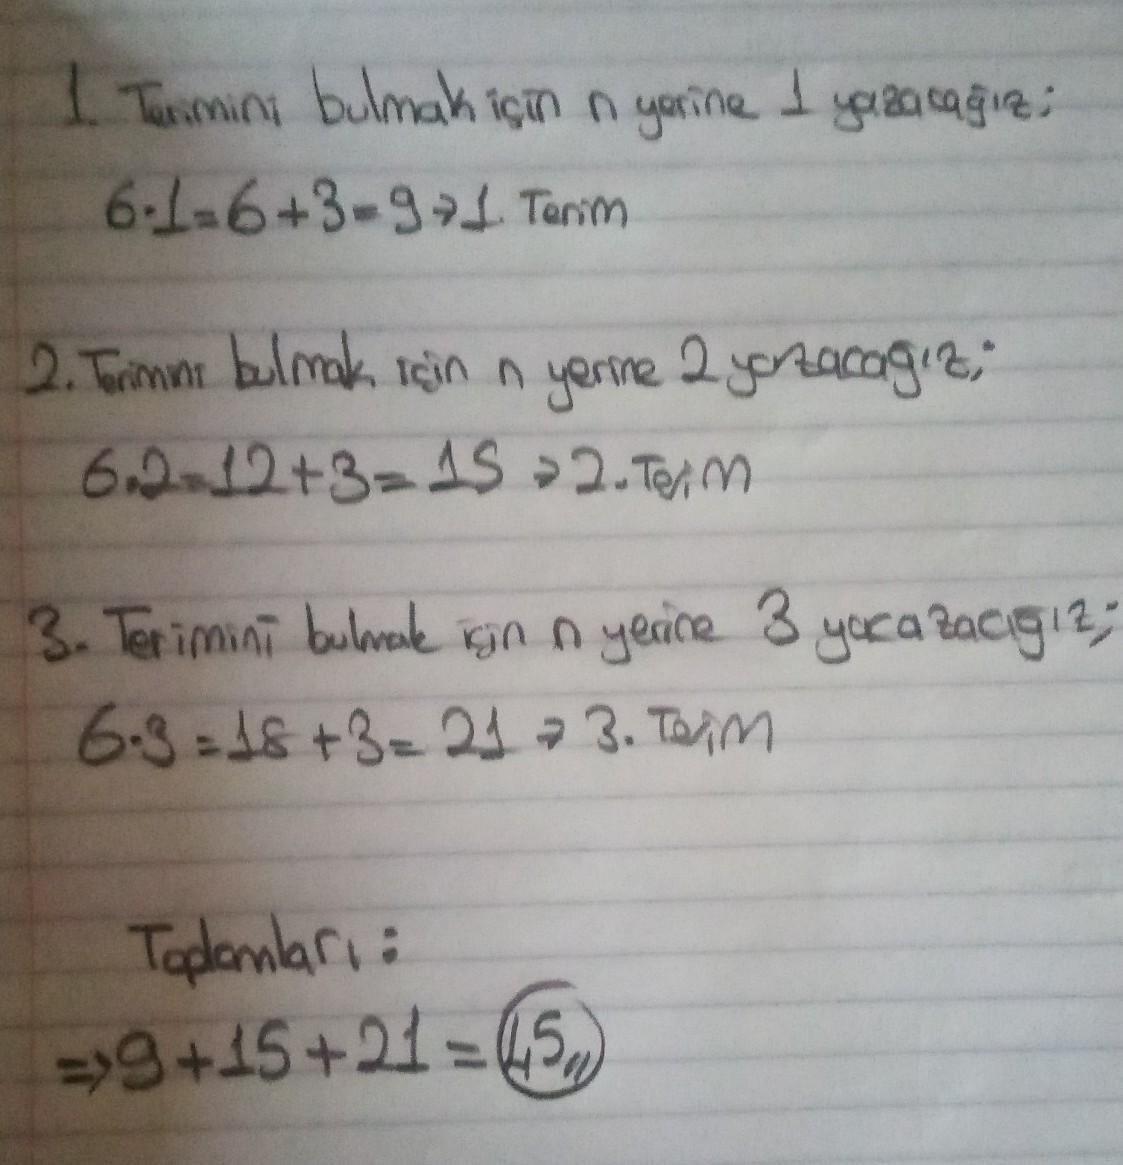 1. Terimini bulmak için n yerine 1 yazacağız;
6.1=6+3=9→1. Terim
2. Terimini bulmak için n yerine 2 yazacağız;
6.2=12+3=15 →2. Terim
3. Terimini bulmak için n yerine 3 yacazacığız;
6.3=18+3=21 → 3. Terim
Toplamları:
⇒9+15+21=45,,